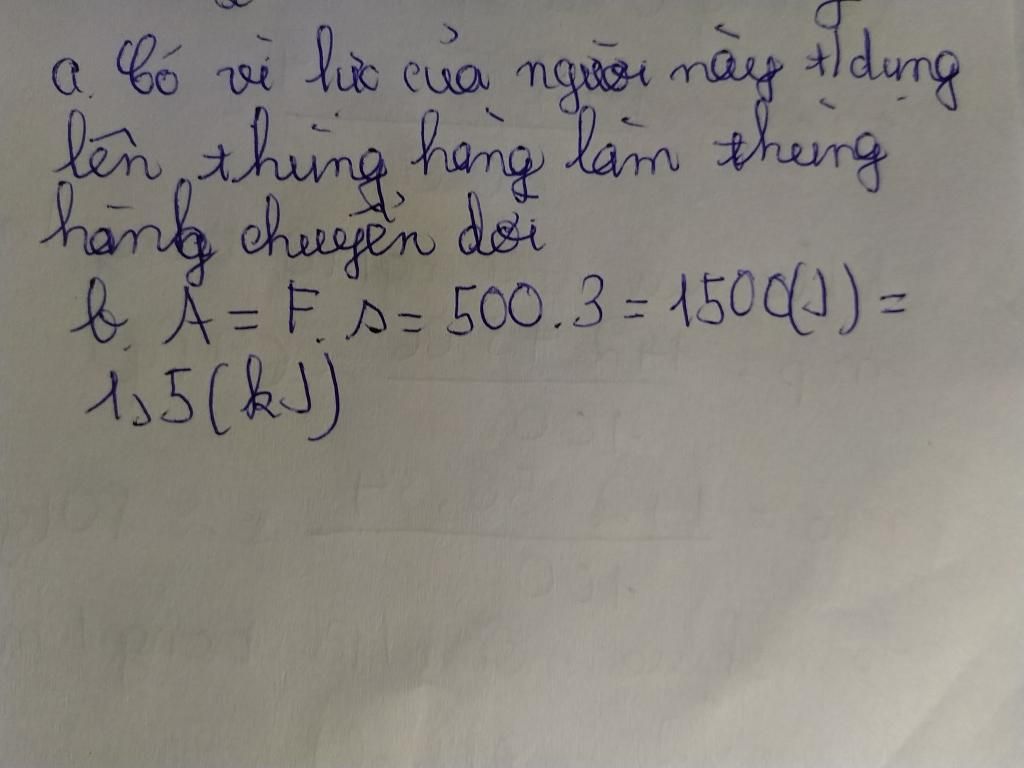 a. Có vì lực của người này t/dụng
lên thùng hàng làm thùng
hàng chuyển dời
b. A = F. s = 500. 3 = 1500(J) =
1,5 (kJ)